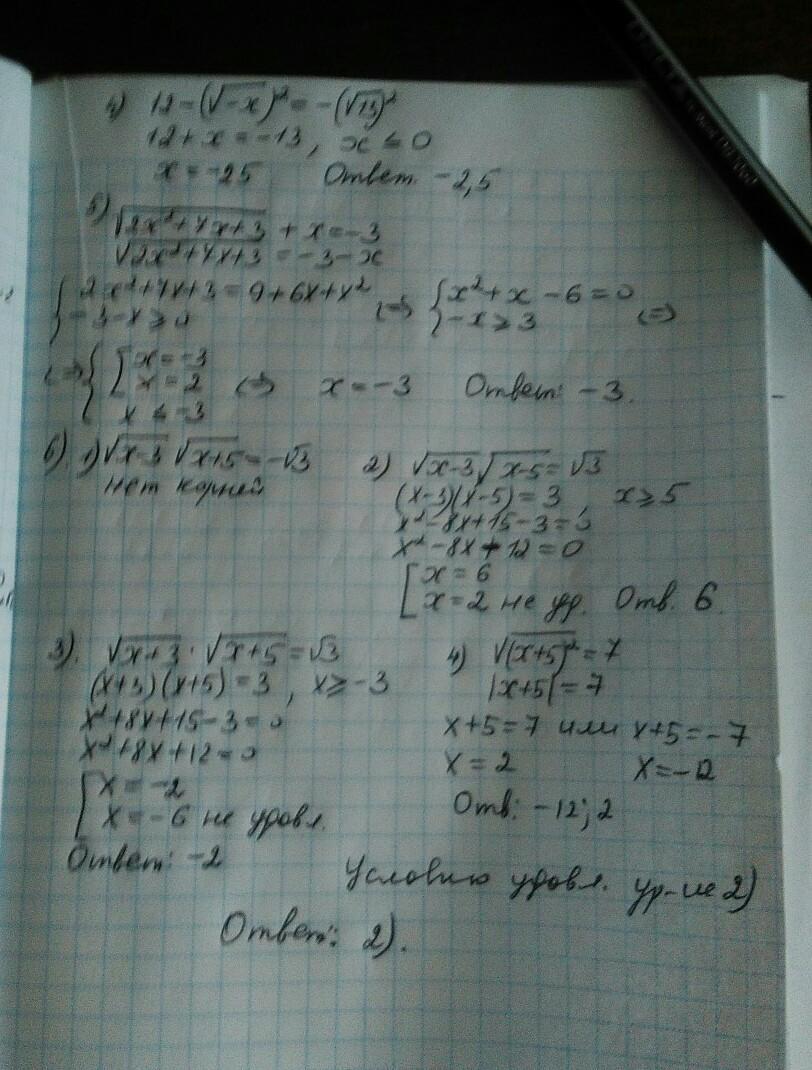 4) 12-(√-x)² = -(√13)²
12+x = -13, x ≤ 0
x = -25 Ответ. -2,5
5) √2x²+4x+3 + x = -3
√2x²+4x+3 = -3-x
{ 2x²+4x+3 = 9+6x+x² <=> { x²+x-6=0
-3-x ≥ 0 -x ≥ 3 <=>
<=> { [ x = -3
x = 2 <=> x = -3 Ответ: -3.
x ≤ -3
6). 1) √x-3 √x+5 = -√3
нет корней
2) √x-3 √x-5 = √3
(x-3)(x-5) = 3, x ≥ 5
x²-8x+15-3=0
x²-8x+12=0
[ x = 6
x = 2 не уд. Отв. 6.
3). √x+3 · √x+5 = √3
(x+3)(x+5) = 3, x ≥ -3
x²+8x+15-3=0
x²+8x+12=0
[ x = -2
x = -6 не удовл.
Ответ: -2
4) √(x+5)² = 7
|x+5| = 7
x+5=7 или x+5=-7
x = 2 x=-12
Отв: -12; 2
Условию удовл. ур-ие 2)
Ответ: 2).